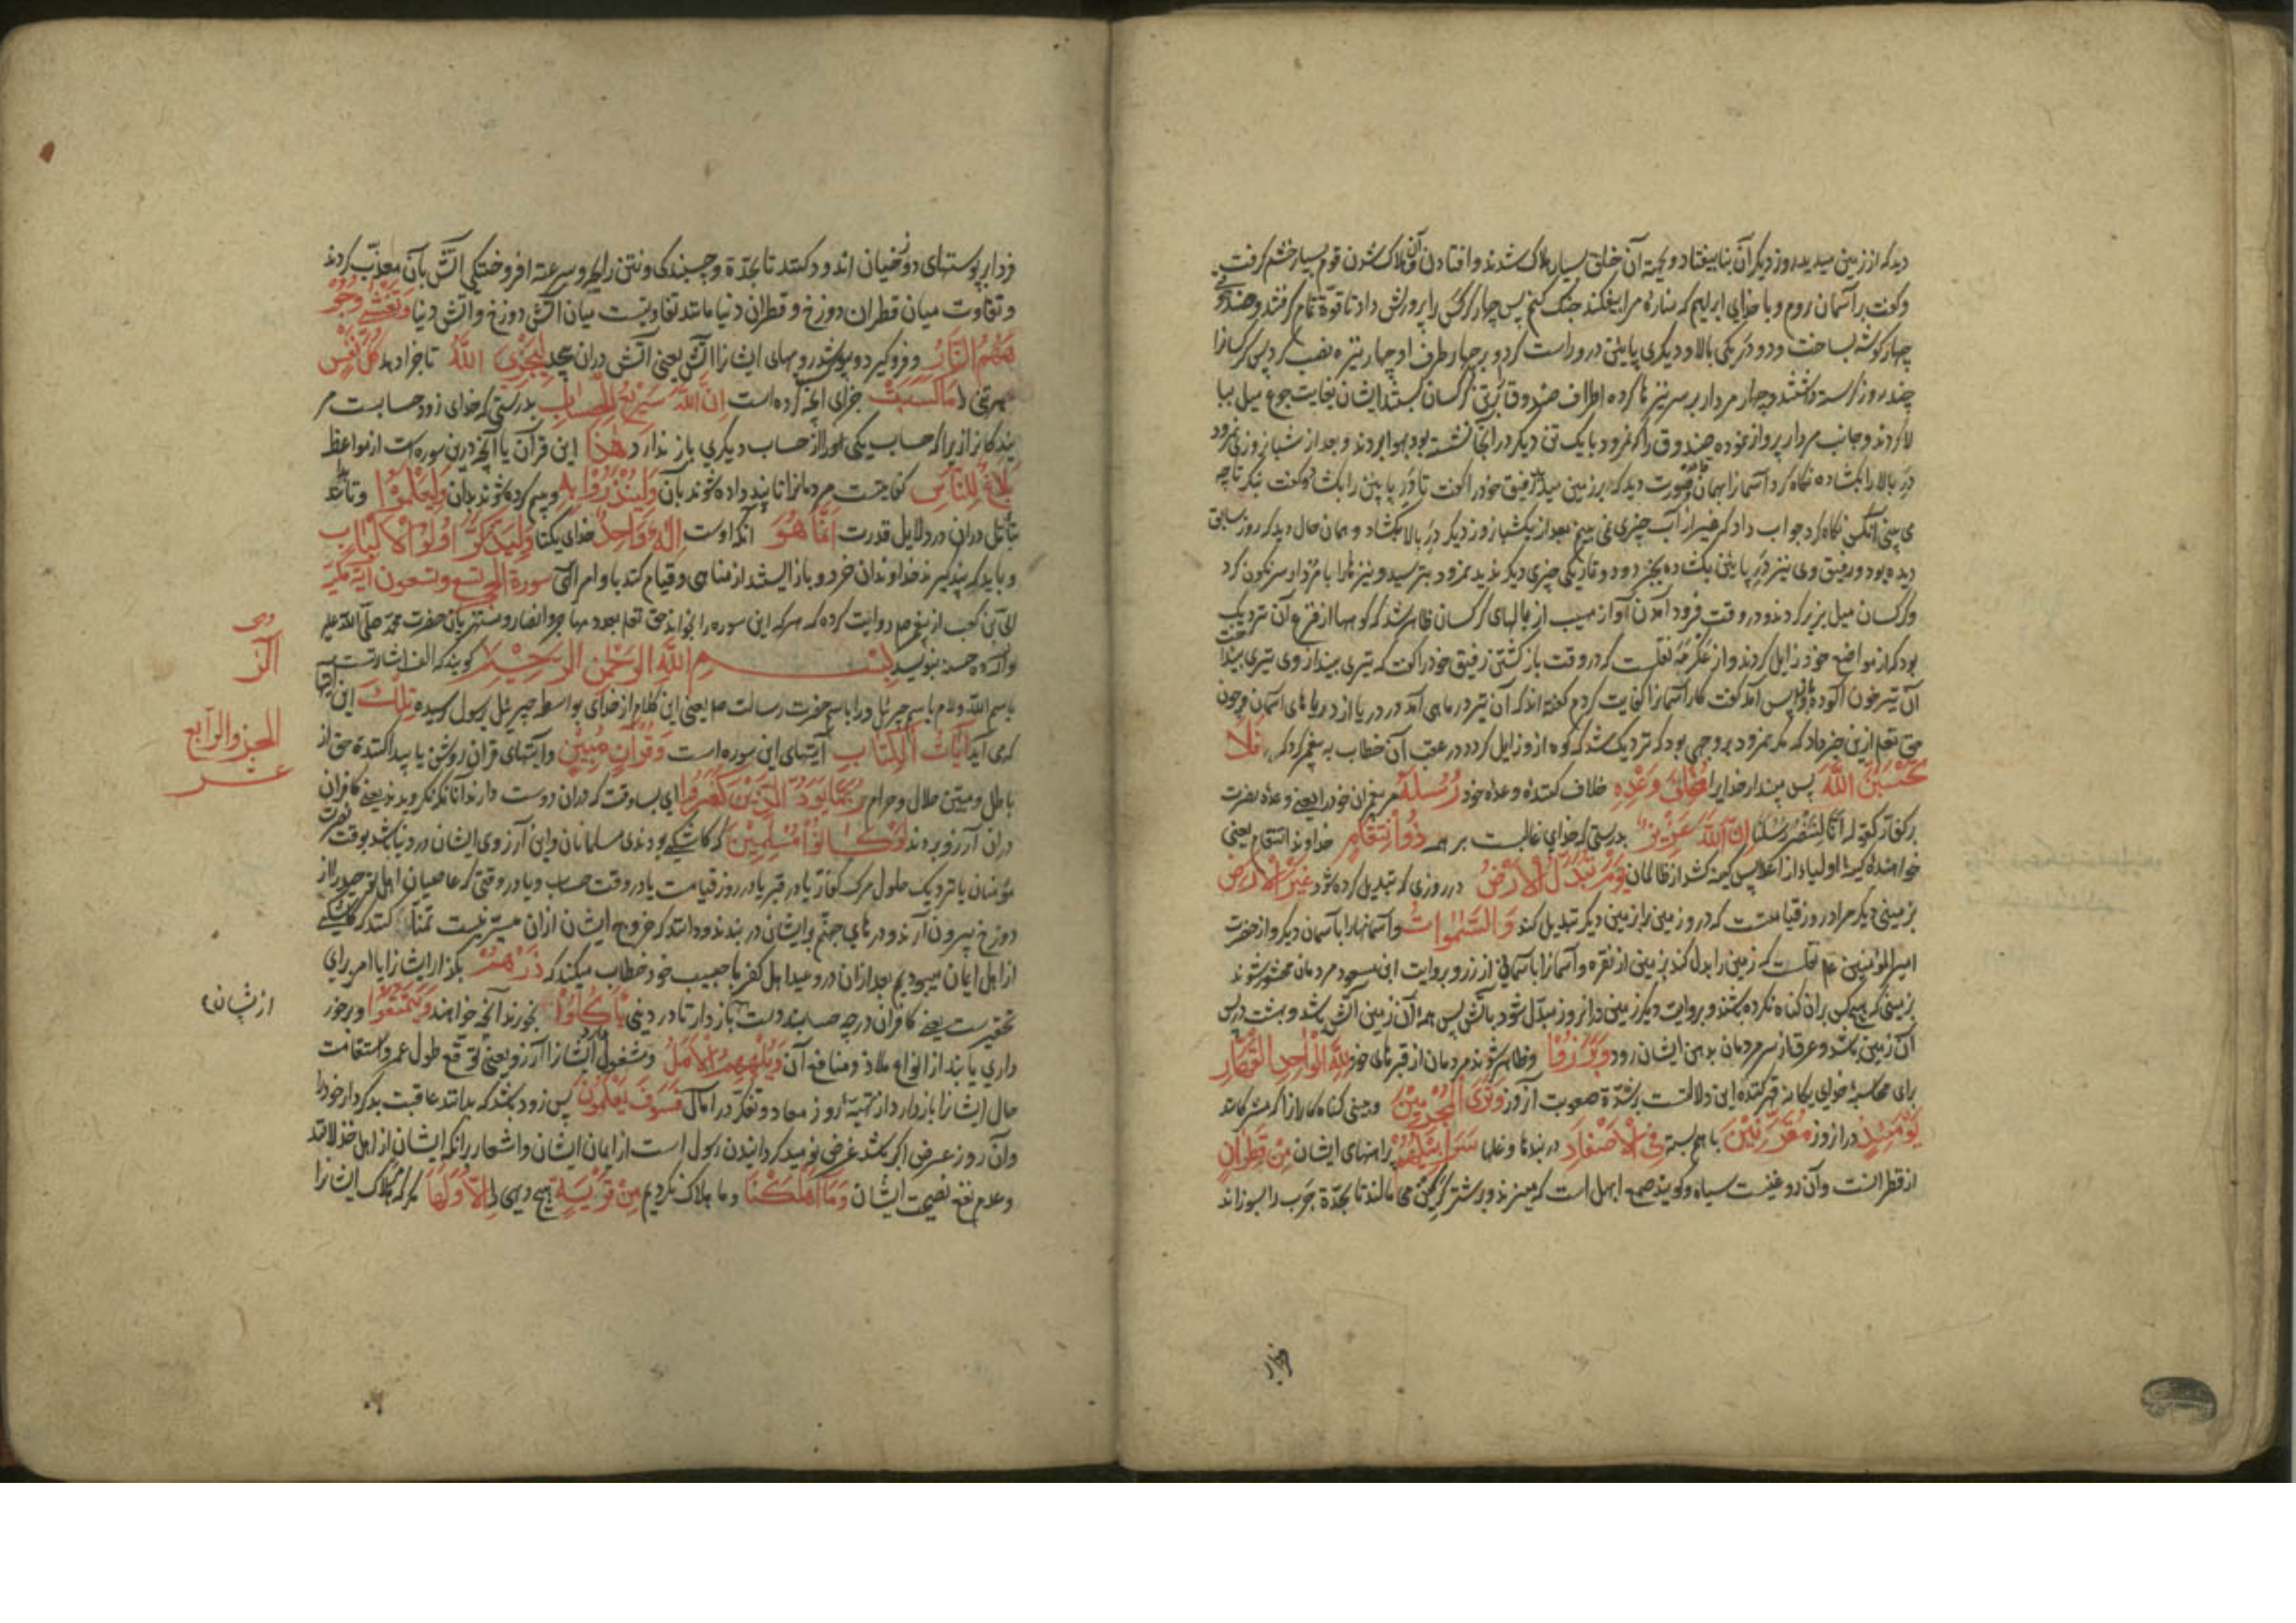 دید که از زمین میدید روز دیگر آن بنا بیفتاد و بجهة آن خلق بسیار هلاک شدند و از افتادن آن و هلاک شدن قوم بسیار خشم گرفت
و گفت بر آسمان روم و با خدای ابراهیم که مناره مرا بیفکند جنک کنم پس چهار کرکس را پرورش داد تا قوة تمام گرفتند و صندوقی
چهار گوشه بساخت و دو در یکی بالا و دیگری پایین درو راست کرد و بر چهار طرف او چهار نیزه نصب کرد پس کرکسانرا
چند روز گرسنه داشتند و چهار مردار بر سر نیزها کرده اطراف صندوق را بر تن کرکسان بستند ایشان بغایت جوع میل ببا
لا کردند و جانب مردار پرواز نموده صندوق را که نمرود با یک تن دیگر در انجا نشسته بود بهوا بردند و بعد از شبانروزی نمرود
در بالا را بکشاده نگاه کرد آسمانرا بهمان صورت دید که بر زمین میدید رفیق خود را گفت تا در پایین را بکشاد و گفت بنکر تا چه
می بینی آنکس نگاه کرد جواب داد که غیر از آب چیزی نمی بینم بعد از یکشبانروز دیگر در بالا بکشاد و همان حال دید که روز سابق
دیده بود و رفیق وی نیز در پایین بکشاده بجز دود و تاریکی چیزی دیگر ندید نمرود بترسید و نیزها را با مردار سرنگون کرد
و کرکسان میل بزیر کردند و در وقت فرود آمدن آواز مهیب از بالهای کرکسان ظاهر شد که کوهها از فزع آن نزدیک
بود که از مواضع خود زایل کردند و از عکرمه نقلست که در وقت باز کشتن رفیق خود را گفت که تیری بینداز وی تیری بینداخت
آن تیر خون آلوده باز پس آمد گفت کار آسمانرا کفایت کردم گفته اند که آن تیر در ماهی آمد در دریا از دریاهای آسمان و چون
حق تعالی ازین خبر داد که مکر نمرود بر وجهی بود که نزدیک شد که کوه از و زایل کردد در عقب آن خطاب به پیغمبر کرد که فَلَا
تَحْسَبَنَّ اللَّهَ پس مپندار خدایرا مُخْلِفَ وَعْدِهِ خلاف کننده وعده خود رُسُلَهُ مر پیغمبران خود را یعنی وعده نصرت
بر کفار کقوله انا لننصر رسلنا اِنَّ اللَّهَ عَزِيزٌ بدرستی که خدای غالبست بر همه ذُو انْتِقَامٍ خداوند انتقام یعنی
خواهنده کینه اولیا از اعدا پس کینه کشد از ظالمان يَوْمَ تُبَدَّلُ الْاَرْضُ در روزی که تبدیل کرده شود غَيْرَ الْاَرْضِ
بزمینی دیگر مراد روز قیامتست که در و زمین را بزمین دیگر تبدیل کند وَالسَّمٰوَاتُ و آسمانها را بآسمان دیگر و از حضرت
امیر المؤمنین عم نقلست که زمین را بدل کند بزمینی از نقره و آسمانرا بآسمانی از زر و بروایت ابن مسعود مردمان محشور شوند
بزمینی که هیچکس بران گناه نکرده باشد و بروایت دیگر زمین در انروز مبدل شود بآتش پس همه آن زمین آتش باشد و بهشت در پس
آن زمین باشد و عرق از سر مردمان بدهن ایشان رود وَبَرَزُوا و ظاهر شوند مردمان از قبرهای خود لِلّٰهِ الْوَاحِدِ الْقَهَّارِ
برای محاسبه خدای یکانه قهر کننده این دلالتست بر شدة صعوبت آنروز وَتَرَى الْمُجْرِمِينَ و ببینی گناهکارانرا که مشرکانند
يَوْمَئِذٍ در انروز مُقَرَّنِينَ با هم بسته فِي الْاَصْفَادِ در بندها و غلها سَرَابِيلُهُمْ پیراهنهای ایشان مِنْ قَطِرَانٍ
از قطرانست و آن روغنیست سیاه و گویند صمغ ابهل است که میپزند و بر شتر گرگین می مالند تا بحدة جرب را بسوزاند
فردا بر پوستهای دوزخیان اندود کنند تا بحدة و چسبندگی و نتن رایحه و سرعة افروختکی آتش بآن معذب کردند
و تفاوت میان قطران دوزخ و قطران دنیا مانند تفاوتست میان آتش دوزخ و آتش دنیا وَتَغْشَى وُجُو
هَهُمُ النَّارُ و فرو گیرد و بپوشد رویهای ایشانرا آتش یعنی آتش دران پیچد لِيَجْزِيَ اللَّهُ تا جزا دهد كُلَّ نَفْسٍ
هر تنی را مَا كَسَبَتْ جزای آنچه کرده است اِنَّ اللَّهَ سَرِيعُ الْحِسَابِ بدرستی که خدای زود حسابست مر
بندگانرا زیرا که حساب یکی او را از حساب دیگری باز ندارد هٰذَا این قرآن یا آنچه درین سوره است از مواعظ
بَلَاغٌ لِلنَّاسِ کفایتست مردمانرا تا پند داده شوند بآن وَلِيُنْذَرُوا بِهِ و بیم کرده شوند بدان وَلِيَعْلَمُوا و تا بدانند
بتأمل دران در دلایل قدرت اَنَّمَا هُوَ آنکه اوست اِلٰهٌ وَاحِدٌ خدای یکتا وَلِيَذَّكَّرَ اُولُوا الْاَلْبَابِ
و باید که پند گیرند خداوندان خرد و باز ایستند از مناهی و قیام کنند باوامر الهی سورة الحجر تسع و تسعون آیة مکیة
ابی بن کعب از پیغمبر صم روایت کرده که هر که این سوره را بخواند حق تعالی بعدد مهاجر و انصار و مستهزیان حضرت محمد صلی الله علیه
و آله ده حسنه بنویسد بِسْمِ اللَّهِ الرَّحْمٰنِ الرَّحِيمِ گویند که الف اشارتست
باسم الله و لام باسم جبرئیل و را باسم حضرت رسالت صم یعنی این کلام از خدای بواسطه جبرئیل برسول رسیده تِلْكَ این آیتها
که می آید آيَاتُ الْكِتَابِ آیتهای این سوره است وَقُرْآنٍ مُبِينٍ و آیتهای قرآن روشن یا پیدا کننده حق از
باطل و مبین حلال و حرام رُبَمَا يَوَدُّ الَّذِينَ كَفَرُوا ای بسا وقت که دران دوست دارند آنانکه نکرویدند یعنی کافران
دران آرزو برند لَوْ كَانُوا مُسْلِمِينَ که کاشکی بودندی مسلمانان و این آرزوی ایشان در دنیا باشد بوقت نصرت
مؤمنان یا نزدیک حلول مرک کفار یا در قبر یا در روز قیامت یا در وقت حساب و یا در وقتی که عاصیان اهل توحید را از
دوزخ بیرون آرند و درهای جهنم بر ایشان در بندند و دانند که خروج ایشان ازان میسر نیست تمنا کنند که کاشکی
از اهل ایمان میبودیم بعد ازان در وعید اهل کفر با حبیب خود خطاب میکند که ذَرْهُمْ بگذار ایشانرا با امر برای
تحقیرست یعنی کافران در چه حسابند دست باز دار تا در دنیی يَأْكُلُوا بخورند آنچه خواهند وَيَتَمَتَّعُوا و برخور
داری یابند از انواع ملاذ و منافع آن وَيُلْهِهِمُ الْاَمَلُ و مشغول دارد ایشانرا آرزو یعنی توقع طول عمر و استقامت
حال ایشانرا باز دارد از تهیه روز معاد و تفکر در مآل فَسَوْفَ يَعْلَمُونَ پس زود باشد که بدانند عاقبت بد کردار خود را
وان روز عرض اکبر باشد غرض نومید گردانیدن رسول است از ایمان ایشان و اشعار برانکه ایشان از اهل خذلانند
و عدم نفع نصیحت ایشان وَمَا اَهْلَكْنَا و ما هلاک نکردیم مِنْ قَرْيَةٍ هیچ دیهی را اِلَّا وَلَهَا مگر که هلاک ایشانرا
الر
الجزو الرابع
عشر
از یشان
فردا بر